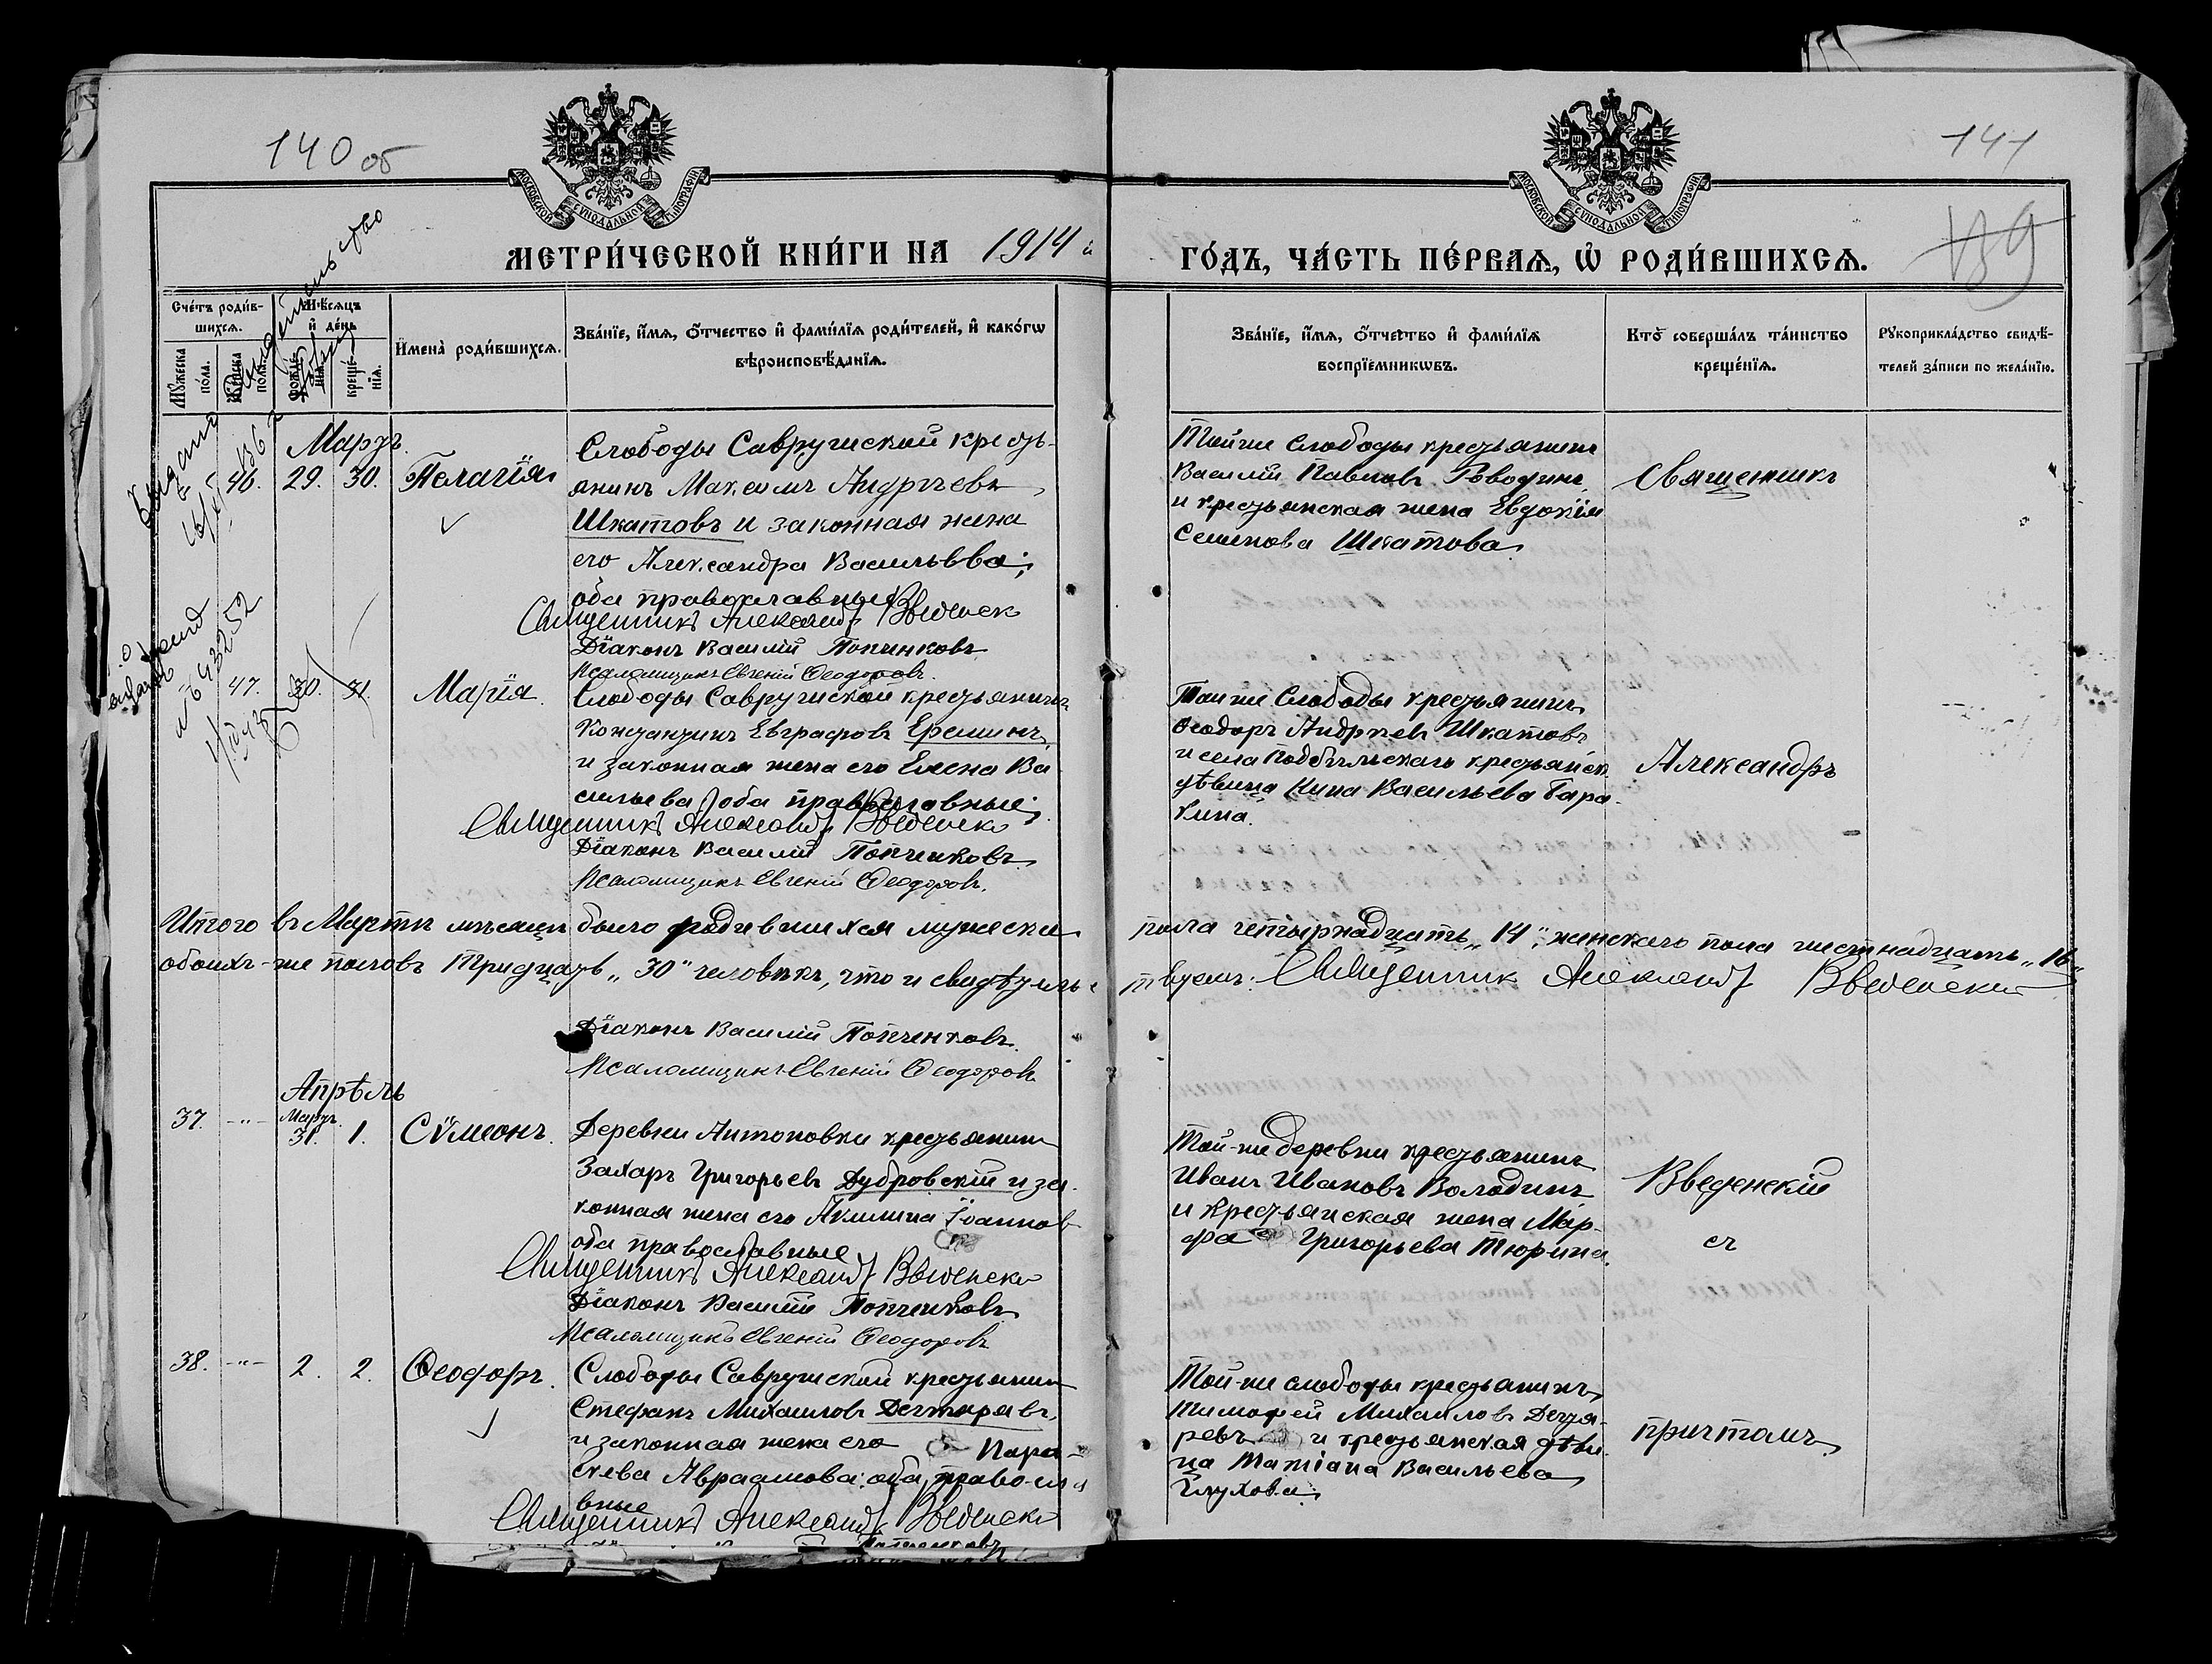 140 об
141
139
МОСКОВСКОЙ СѴНОДАЛЬНОЙ ТИПОГРАФІИ
МОСКОВСКОЙ СѴНОДАЛЬНОЙ ТИПОГРАФІИ
МЕТРИ́ЧЕСКОЙ КНИ́ГИ НА 1914 й
ГО́ДЪ, ЧА́СТЬ ПЕ́РВАѦ, Ѡ҆ РОДИ́ВШИХСѦ.
Сче́тъ роди́в-
шихсѧ.
Мꙋ́жеска по́ла.
Же́нска по́ла.
Мѣ́сѧцъ и҆ де́нь
рожде́-
нїѧ.
креще́-
нїѧ.
И҆мена̀ роди́вшихсѧ.
Зва́нїе, и҆́мѧ, ѻ҆́тчество и҆ фами́лїѧ роди́телей, и҆ како́гѡ
вѣроисповѣ́данїѧ.
Зва́нїе, и҆́мѧ, ѻ҆́тчество и҆ фами́лїѧ
воспрїе́мникѡвъ.
Кто̀ соверша́лъ та́инство
креще́нїѧ.
Рꙋкоприкла́дство свидѣ́-
телей за́писи по жела́нїю.
Мартъ.
46. 29. 30. Пелагія
Слободы Саврушской кресть-
янинъ Максимъ Андреевъ
Шкатовъ и законная жена
его Александра Васильева;
оба православные
Священникъ Александръ Введенск
Діаконъ Василій Попченковъ
Псаломщикъ Евгеній Ѳеодоровъ.
Той же Слободы крестьянинъ
Василій Павловъ
и крестьянская жена Евдокія
Семенова Шкатова
Священникъ
47. 30. 31. Марія.
Слободы Саврушской крестьянинъ
Константинъ Евграфовъ Ереминъ
и законная жена его Елена Ва
сильева, оба православные;
Священникъ Александръ Введенск
Діаконъ Василій Попченковъ
Псаломщикъ Евгеній Ѳеодоровъ.
Той же Слободы крестьянинъ
Ѳеодоръ Андреевъ Шкатовъ
и села Подбѣльскаго крестьянск.
дѣвица Нина Васильева Бара-
кина.
Александръ
Итого въ Мартѣ мѣсяцѣ было родившихся мужеска пола четырнадцать „14", женскаго пола шестнадцать „16"
обоихъ-же половъ тридцать „30" человѣкъ, что и свидѣтельствуемъ: Священник Александръ Введенский
Діаконъ Василій Попченковъ.
Псаломщикъ Евгеній Ѳеодоровъ
Апрѣль
37. -"- Мартъ. 31. 1. Сѵмеонъ.
Деревни Антоновки крестьянинъ
Захаръ Григорьевъ Дубровскій и за-
конная жена его Акилина Іоаннов
оба православные
Священникъ Александръ Введенски
Діаконъ Василій Попченковъ
Псаломщикъ Евгеній Ѳеодоровъ
Той-же деревни крестьянинъ
Иванъ Ивановъ Володинъ
и крестьянская жена Мар-
фа Григорьева Тюрина.
Введенскій
съ
38. -"- 2. 2. Ѳеодоръ.
Слободы Саврушской крестьянинъ
Стефанъ Михаиловъ Дегтяревъ,
и законная жена его Пара-
скева Авраамова; оба правосла
вные
Священникъ Александръ Введенски
Попченковъ
Той-же слободы крестьянинъ
Тимофей Михаиловъ Дегтя-
ревъ и крестьянская дѣви-
ца Татіана Васильева
Глухова.
причтомъ